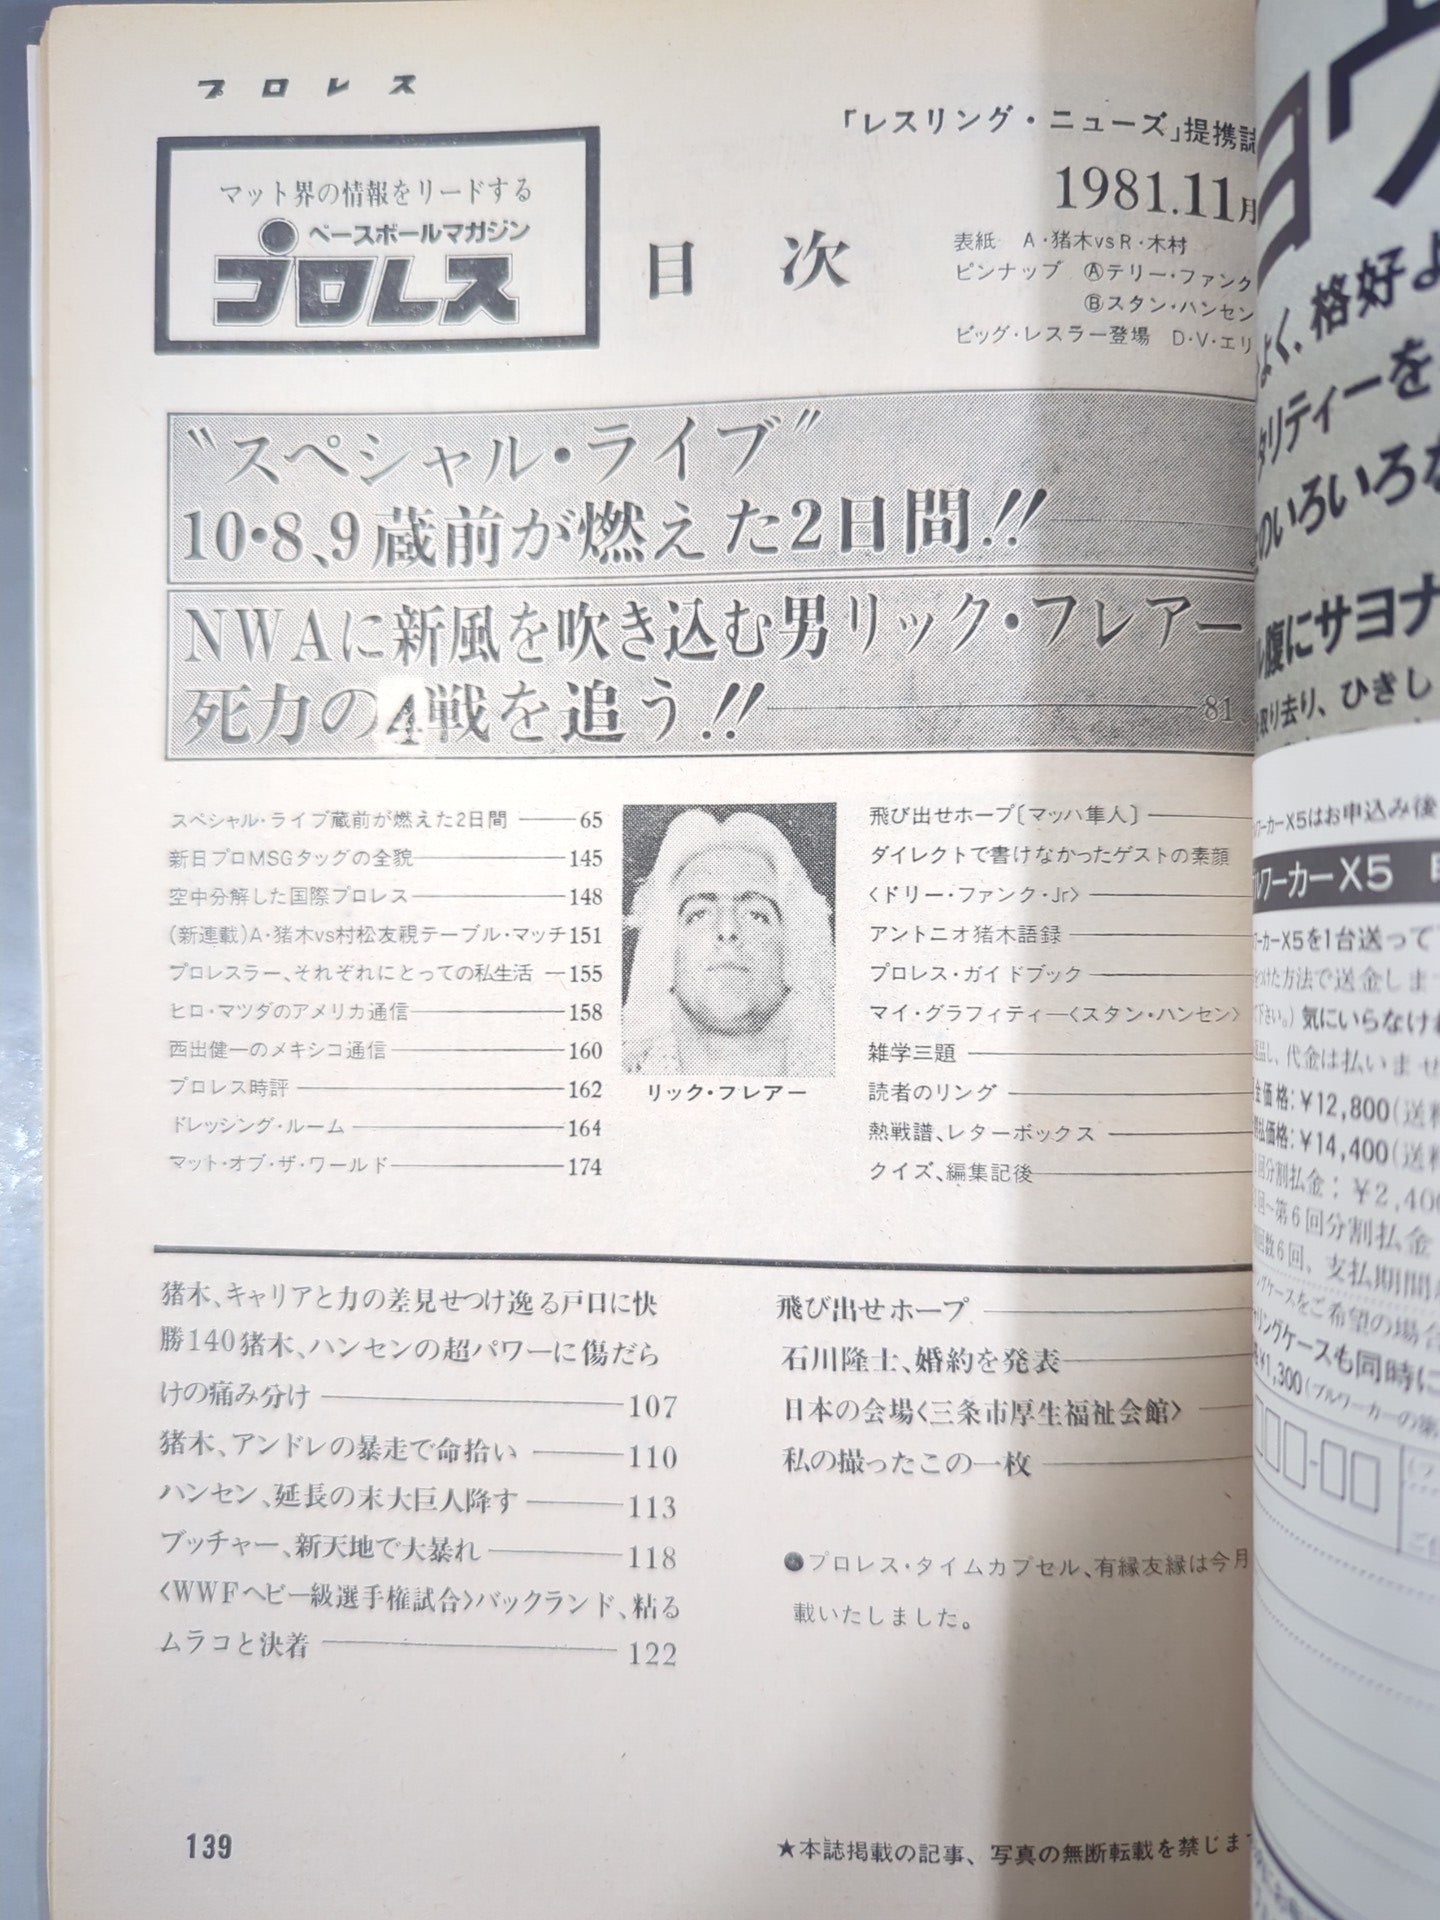 プロレス
マット界の情報をリードする
ベースボールマガジン
プロレス
目次
「レスリング・ニューズ」提携誌
1981.11月
表紙 A・猪木vsR・木村
ピンナップ Ⓐテリー・ファンク
Ⓑスタン・ハンセン
ビッグ・レスラー登場 D・V・エリ
〝スペシャル・ライブ〟
10・8、9蔵前が燃えた2日間!!
NWAに新風を吹き込む男リック・フレアー
死力の4戦を追う!! 81
スペシャル・ライブ蔵前が燃えた2日間 65
新日プロMSGタッグの全貌 145
空中分解した国際プロレス 148
(新連載)A・猪木vs村松友視テーブル・マッチ151
プロレスラー、それぞれにとっての私生活 155
ヒロ・マツダのアメリカ通信 158
西出健一のメキシコ通信 160
プロレス時評 162
ドレッシング・ルーム 164
マット・オブ・ザ・ワールド 174
リック・フレアー
飛び出せホープ〔マッハ隼人〕
ダイレクトで書けなかったゲストの素顔
〈ドリー・ファンク・Jr〉
アントニオ猪木語録
プロレス・ガイドブック
マイ・グラフィティー〈スタン・ハンセン〉
雑学三題
読者のリング
熱戦譜、レターボックス
クイズ、編集記後
猪木、キャリアと力の差見せつけ逸る戸口に快
勝140猪木、ハンセンの超パワーに傷だら
けの痛み分け 107
猪木、アンドレの暴走で命拾い 110
ハンセン、延長の末大巨人降す 113
ブッチャー、新天地で大暴れ 118
〈WWFヘビー級選手権試合〉バックランド、粘る
ムラコと決着 122
飛び出せホープ
石川隆士、婚約を発表
日本の会場〈三条市厚生福祉会館〉
私の撮ったこの一枚
●プロレス・タイムカプセル、有縁友縁は今月
載いたしました。
139
★本誌掲載の記事、写真の無断転載を禁じま
よく、格好よ
タリティーを
のいろいろな
腹にサヨナ
取り去り、ひきし
ーカーX5はお申込み後
ルワーカーX5
ーカーX5を1台送って
つけた方法で送金しま
下さい。)気にいらなけれ
返品し、代金は払いませ
金価格:¥12,800(送料
払価格:¥14,400(送料
回分割払金:¥2,400
回〜第6回分割払金
回数6回、支払期間
ングケースをご希望の場合
リングケースも同時に
¥1,300(ブルワーカーの第